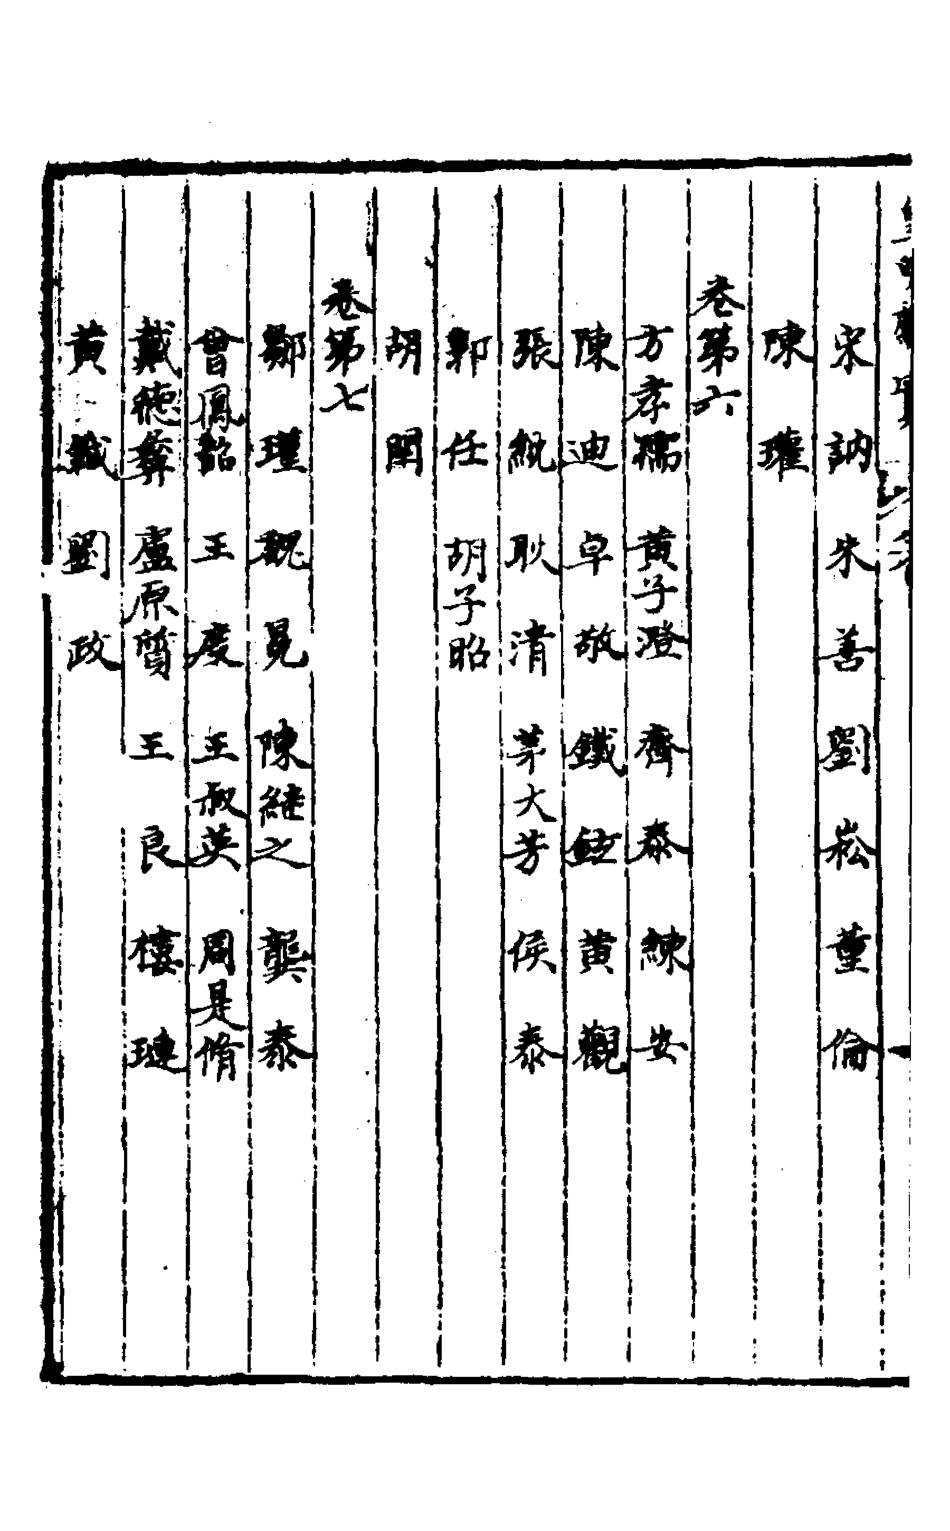 宋訥 朱善 劉崧 董倫
陳瓘
卷第六
方孝孺 黃子澄 齊泰 練安
陳迪 卓敬 鐵鉉 黃觀
張紞 耿清 茅大芳 侯泰
郭任 胡子昭
胡閏
卷第七
鄒瑾 魏冕 陳繼之 龔泰
曾鳳韶 王度 王叔英 周是脩
戴德彝 盧原質 王良 樓璉
黃鉞 劉政